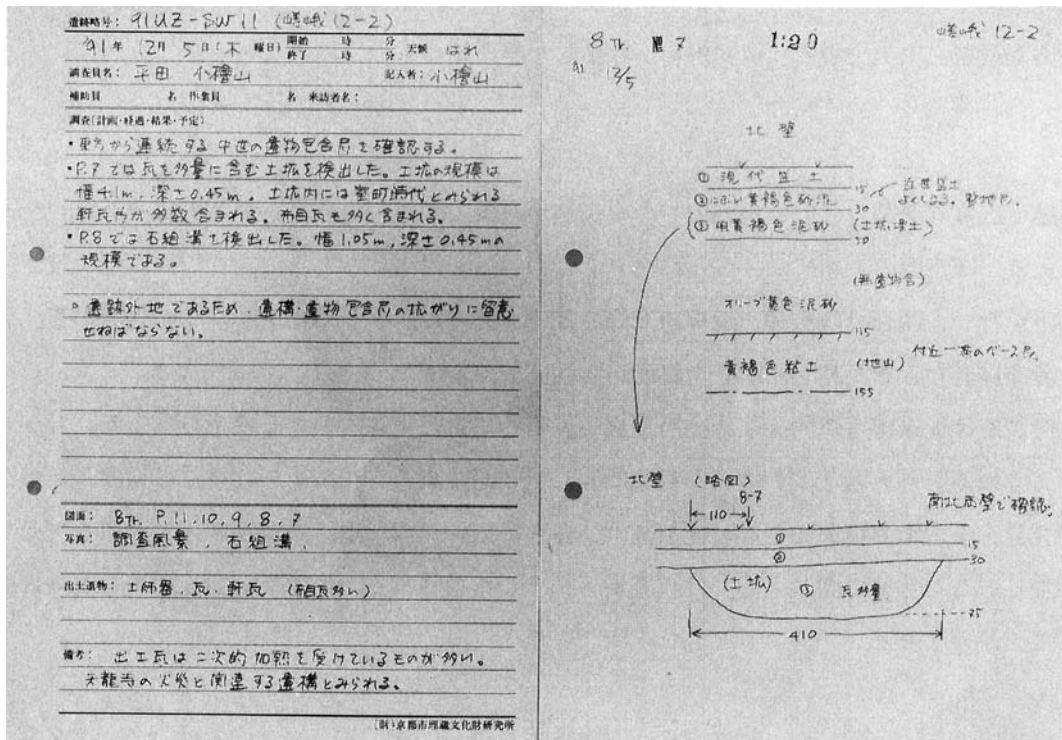 遺跡略号: 91UZ-SW11 (嵯峨12-2)
91年 12月 5日 (木曜日) 開始 時 分 終了 時 分 天候 はれ
調査員名: 平田 小檜山 記入者: 小檜山
補助員 名 作業員 名 来訪者名:
調査(計画・経過・結果・予定)
・東方から連続する中世の遺物包含层を確認する。
・P.7では瓦を多量に含む土坑を検出した。土坑の規模は
幅4.1m, 深さ0.45m。土坑内には室町時代とみられる
軒瓦片が多数含まれる。布目瓦も多く含まれる。
・P.8では石組溝を検出した。幅1.05m, 深さ0.45mの
規模である。
○遺跡外地であるため、遺構・遺物包含层の拡がりに留意
せねばならない。
図面: 8TH. P.11, 10, 9, 8, 7
写真: 調査風景, 石組溝,
出土遺物: 土師器, 瓦, 軒瓦 (布目瓦多い)
備考: 出土瓦は二次的加熱を受けているものが多い。
天龍寺の火災と関連する遺構とみられる。
(財)京都市埋蔵文化財研究所
8TH. 7 1:20 嵯峨12-2
91 12/5
北壁
① 現代盛土
15
②にぶい黄褐色砂泥
30
近世盛土
整地层
③ 明黄褐色泥砂 (土坑埋土)
50
(無遺物含)
オリーブ黄色泥砂
115
黄褐色粘土 (地山) 付近一帯のベース层
155
北壁 (略図)
8-7
110
南北両壁で確認
①
15
②
30
(土坑) ③ 瓦多量
75
410